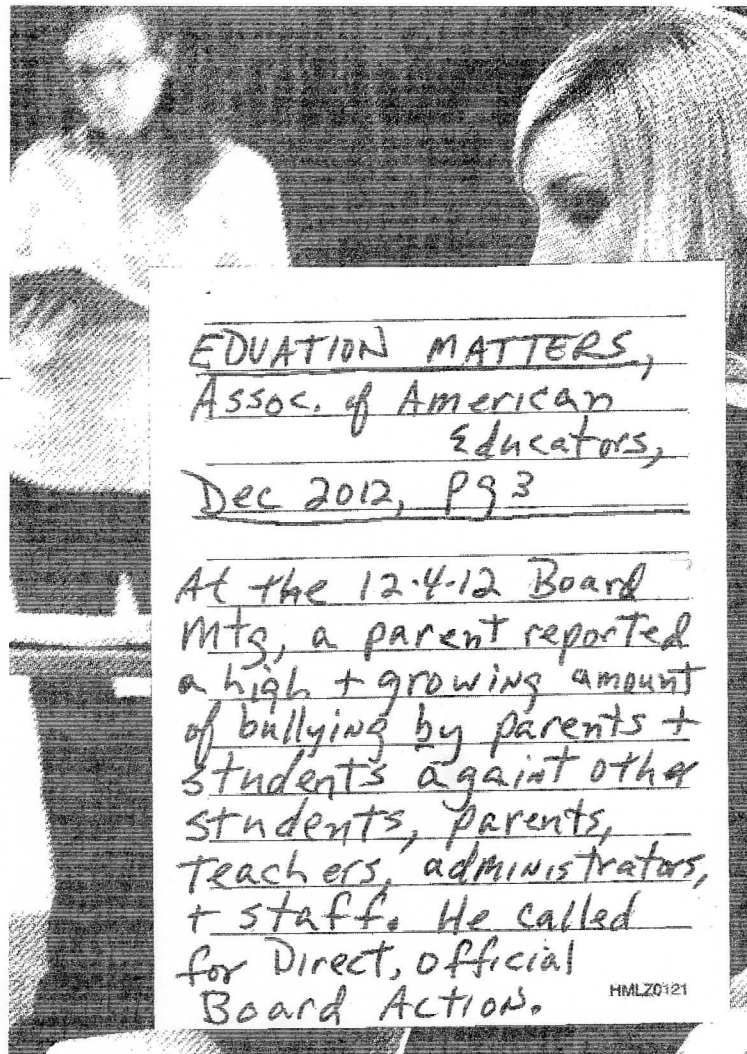 EDUATION MATTERS,
Assoc. of American
Educators,
Dec 2012, pg 3
At the 12-4-12 Board
Mtg, a parent reported
a high + growing amount
of bullying by parents +
students againt other
students, parents,
teachers, administrators,
+ staff. He called
for Direct, official
Board Action.
HMLZ0121